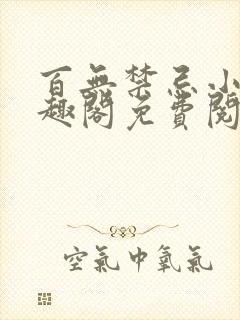 百無禁忌小
趣閣免費閱
空氣中氧氣